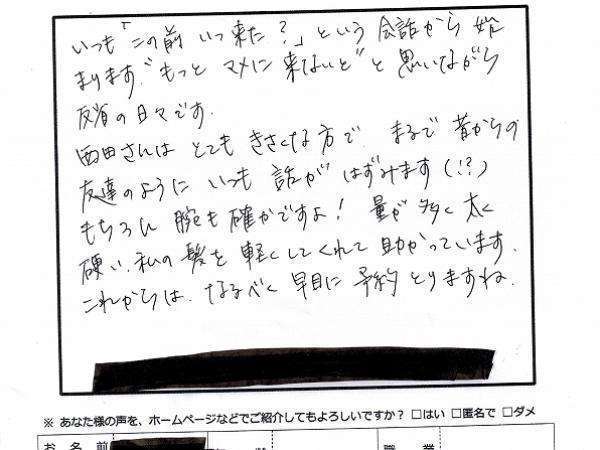 いつも「この前 いつ来た？」という 会話から 始
まります。"もっと マメに 来ないと" と 思いながら
反省の日々です.
西田さんは とても きさくな方で. まるで 昔からの
友達のように いつも 話が はずみます (!?)
もちろん 腕も 確かですよ! 量が 多く 太く
硬い. 私の髪を 軽くしてくれて 助かっています.
これからは. なるべく 早目に 予約 とりますね.
※ あなた様の声を、ホームページなどでご紹介してもよろしいですか？ □はい □匿名で □ダメ
お 名 前
職 業